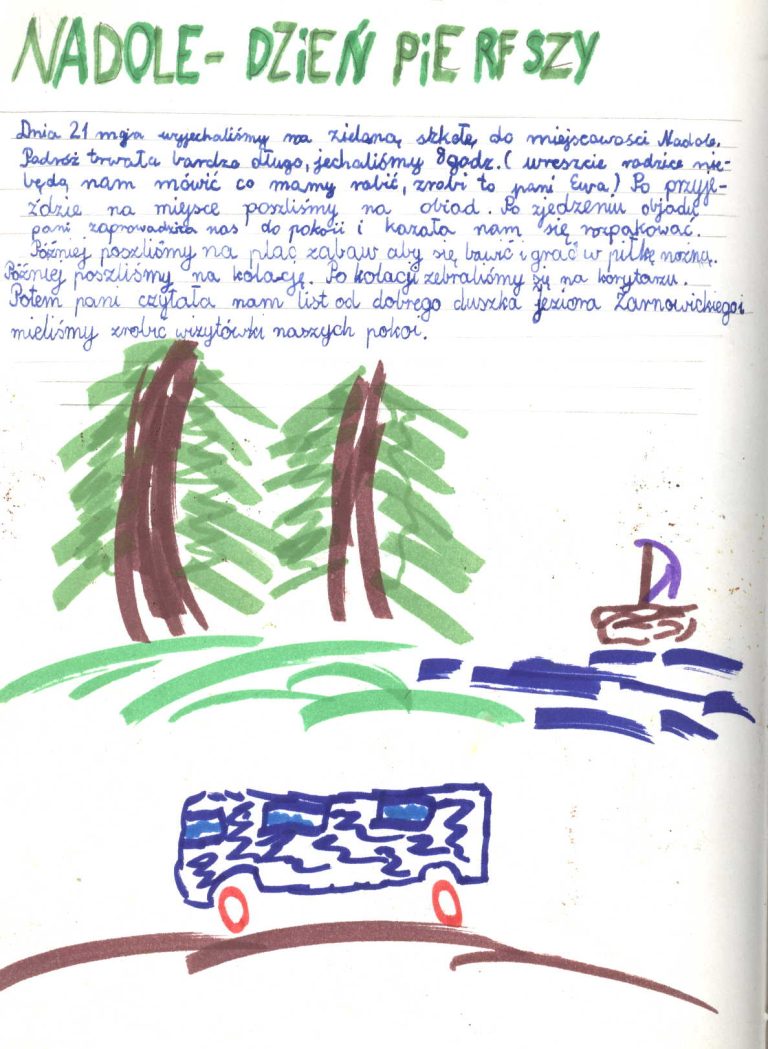 NADOLE- DZiEŃ PiERFSZY
Dnia 21 maja wyjechaliśmy na zieloną szkołę do miejscowości Nadole.
Podróż trwała bardzo długo, jechaliśmy 8 godz. ( wreszcie rodzice nie-
będą nam mówić co mamy robić, zrobi to pani Ewa.) Po przyje-
ździe na miejsce poszliśmy na obiad. Po zjedzeniu objadu
pani zaprowadziła nas do pokoii i kazała nam się rozpakować.
Później poszliśmy na plac zabaw aby się bawić i grać w piłkę nożną.
Później poszliśmy na kolację. Po kolacji zebraliśmy się na korytarzu.
Potem pani czytała nam list od dobrego duszka jeziora Żarnowickiego i
mieliśmy zrobić wizytówki naszych pokoi.